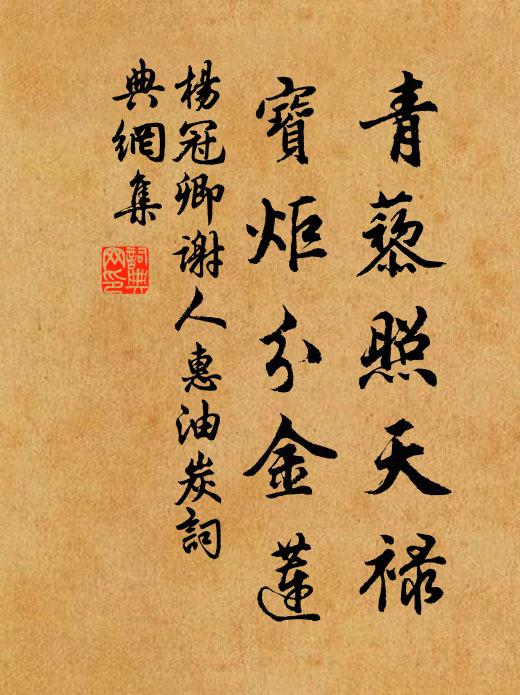 青藜照天禄
寶炬分金蓮
楊冠卿谢人惠油炭詞
典網集
詞典
网印